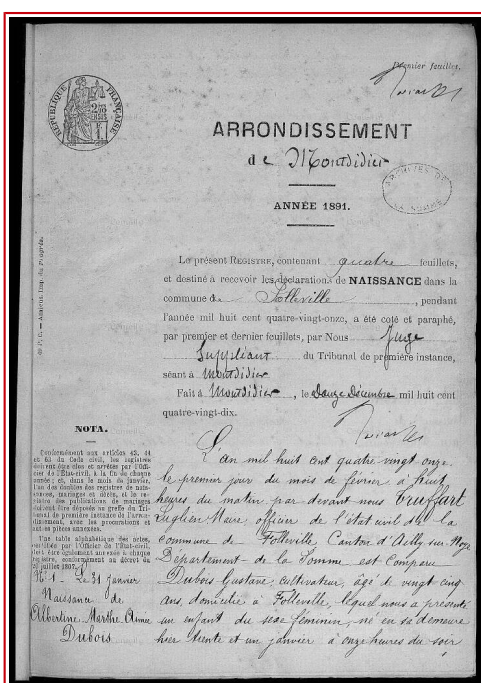 Premier feuillet.
RÉPUBLIQUE FRANÇAISE
ARRONDISSEMENT
de Montdidier
ARCHIVES DE
LA SOMME
ANNÉE 1891.
Le présent REGISTRE, contenant quatre feuillets,
et destiné à recevoir les déclarations de NAISSANCE dans la
commune de Folleville, pendant
l'année mil huit cent quatre-vingt-onze, a été coté et paraphé,
par premier et dernier feuillets, par Nous Juge
Suppléant du Tribunal de première instance,
séant à Montdidier
Fait à Montdidier, le Douze Décembre mil huit cent
quatre-vingt-dix.
NOTA.
Conformément aux articles 43, 44
et 63 du Code civil, les registres
doivent être clos et arrêtés par l'Offi-
cier de l'État-civil, à la fin de chaque
année; et, dans le mois de janvier,
l'un des doubles des registres de nais-
sances, mariages et décès, et le re-
gistre des publications de mariages
doivent être déposés au greffe du Tri-
bunal de première instance de l'arron-
dissement, avec les procurations et
autres pièces annexées.
Une table alphabétique des actes,
certifiée par l'Officier de l'État-civil,
doit être également annexée à chaque
registre, conformément au décret du
20 juillet 1807.
N° 1 - Le 31 janvier
Naissance de
Albertine Marthe Aimée
Dubois
L'an mil huit cent quatre vingt onze
le premier jour du mois de février à huit
heures du matin par devant nous Truffart
Luglien Maire, officier de l'état civil de la
commune de Folleville Canton d'Ailly-sur-Noye
Département de la Somme est comparu
Dubois Gustave, cultivateur, âgé de vingt cinq
ans, domicilié à Folleville, lequel nous a présenté
un enfant du sexe féminin, né en sa demeure
hier trente et un janvier à onze heures du soir